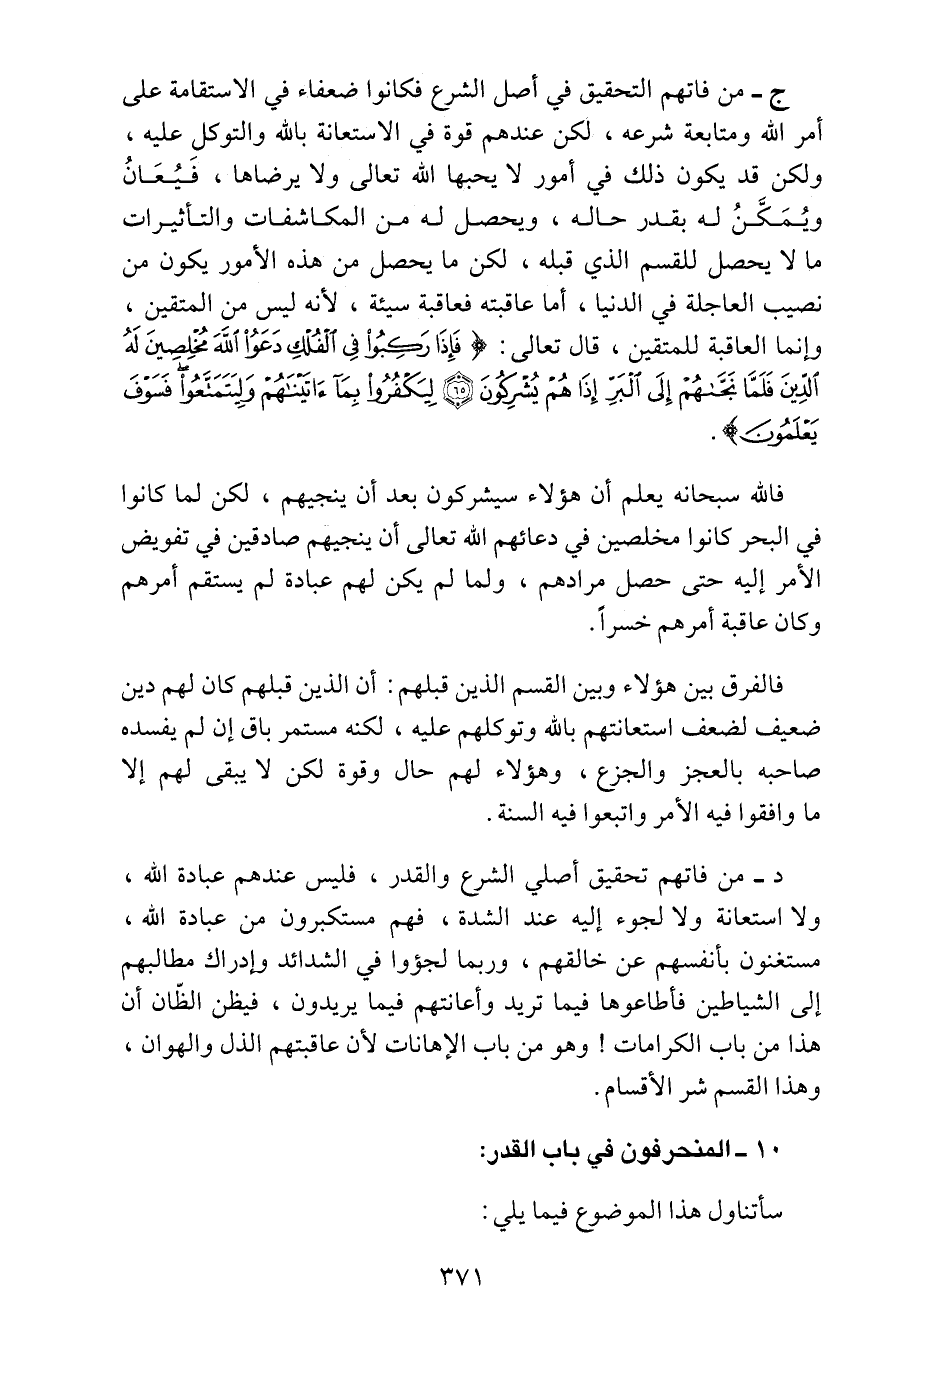 ج ـ من فاتهم التحقيق في أصل الشرع فكانوا ضعفاء في الاستقامة على
أمر الله ومتابعة شرعه ، لكن عندهم قوة في الاستعانة بالله والتوكل عليه ،
ولكن قد يكون ذلك في أمور لا يحبها الله تعالى ولا يرضاها ، فَيُعَانُ
ويُمَكَّنُ له بقدر حاله ، ويحصل له من المكاشفات والتأثيرات
ما لا يحصل للقسم الذي قبله ، لكن ما يحصل من هذه الأمور يكون من
نصيب العاجلة في الدنيا ، أما عاقبته فعاقبة سيئة ، لأنه ليس من المتقين ،
وإنما العاقبة للمتقين ، قال تعالى : ﴿ فَإِذَا رَكِبُواْ فِي ٱلْفُلْكِ دَعَوُاْ ٱللَّهَ مُخْلِصِينَ لَهُ
ٱلدِّينَ فَلَمَّا نَجَّىٰهُمْ إِلَى ٱلْبَرِّ إِذَا هُمْ يُشْرِكُونَ ﴿٦٥﴾ لِيَكْفُرُواْ بِمَآ ءَاتَيْنَٰهُمْ وَلِيَتَمَتَّعُواْۖ فَسَوْفَ
يَعْلَمُونَ ﴾ .
فالله سبحانه يعلم أن هؤلاء سيشركون بعد أن ينجيهم ، لكن لما كانوا
في البحر كانوا مخلصين في دعائهم الله تعالى أن ينجيهم صادقين في تفويض
الأمر إليه حتى حصل مرادهم ، ولما لم يكن لهم عبادة لم يستقم أمرهم
وكان عاقبة أمرهم خسراً.
فالفرق بين هؤلاء وبين القسم الذين قبلهم : أن الذين قبلهم كان لهم دين
ضعيف لضعف استعانتهم بالله وتوكلهم عليه ، لكنه مستمر باق إن لم يفسده
صاحبه بالعجز والجزع ، وهؤلاء لهم حال وقوة لكن لا يبقى لهم إلا
ما وافقوا فيه الأمر واتبعوا فيه السنة .
د ـ من فاتهم تحقيق أصلي الشرع والقدر ، فليس عندهم عبادة الله ،
ولا استعانة ولا لجوء إليه عند الشدة ، فهم مستكبرون من عبادة الله ،
مستغنون بأنفسهم عن خالقهم ، وربما لجؤوا في الشدائد وإدراك مطالبهم
إلى الشياطين فأطاعوها فيما تريد وأعانتهم فيما يريدون ، فيظن الظّان أن
هذا من باب الكرامات ! وهو من باب الإهانات لأن عاقبتهم الذل والهوان ،
وهذا القسم شر الأقسام .
١٠ ـ المنحرفون في باب القدر:
سأتناول هذا الموضوع فيما يلي :
٣٧١